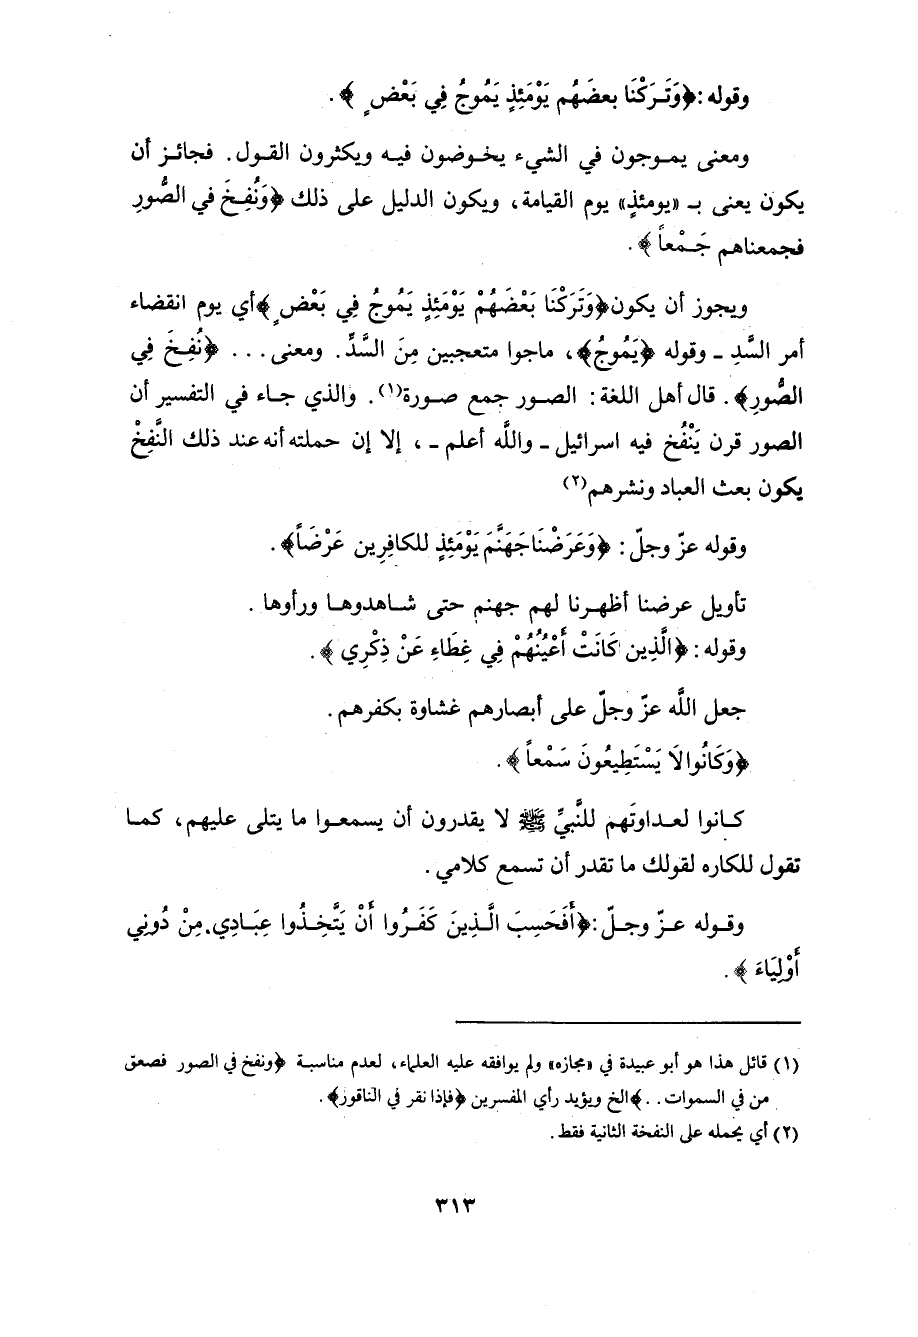 وقوله: ﴿وَتَركْنَا بعضَهُم يَوْمَئِذٍ يَمُوجُ فِي بَعْضٍ﴾.
ومعنى يموجون في الشيء يخوضون فيه ويكثرون القول. فجائز أن
يكون يعنى بـ «يومئذٍ» يوم القيامة، ويكون الدليل على ذلك ﴿وَنُفِخَ في الصُّورِ
فجمعناهم جَمْعاً﴾.
ويجوز أن يكون ﴿وَتَرَكْنَا بَعْضَهُمْ يَوْمَئِذٍ يَمُوجُ فِي بَعْضٍ﴾ أي يوم انقضاء
أمر السَّدِ ـ وقوله ﴿يَمُوجُ﴾، ماجوا متعجبين مِنَ السَّدِّ. ومعنى... ﴿نُفِخَ فِي
الصُّورِ﴾. قال أهل اللغة: الصور جمع صورة(١). والذي جاء في التفسير أن
الصور قرن يَنْفُخ فيه اسرائيل ـ والله أعلم ـ ، إلا إن حملته أنه عند ذلك النَّفِخْ
يكون بعث العباد ونشرهم(٢)
وقوله عزّ وجلّ: ﴿وَعَرَضْنَا جَهَنَّمَ يَوْمَئِذٍ للكافِرِين عَرْضَاً﴾.
تأويل عرضنا أظهرنا لهم جهنم حتى شاهدوها ورأوها .
وقوله: ﴿الَّذِين كَانَتْ أَعْيُنُهُمْ فِي غِطَاءِ عَنْ ذِكْرِي﴾.
جعل اللَّه عزّ وجلّ على أبصارهم غشاوة بكفرهم.
﴿وَكَانُوا لَا يَسْتَطِيعُونَ سَمْعاً﴾.
كانوا لعداوتهم للنَّبيِّ ﷺ لا يقدرون أن يسمعوا ما يتلى عليهم، كما
تقول للكاره لقولك ما تقدر أن تسمع كلامي.
وقوله عزّ وجلّ: ﴿أَفَحَسِبَ الَّذِينَ كَفَرُوا أَنْ يَتَّخِذُوا عِبَادِي مِنْ دُونِي
أَوْلِيَاءَ﴾.
(١) قائل هذا هو أبو عبيدة في «مجازه» ولم يوافقه عليه العلماء، لعدم مناسبة ﴿ونفخ في الصور فصعق
من في السموات. .﴾الخ ويؤيد رأي المفسرين ﴿فإذا نقر في الناقور﴾.
(٢) أي يحمله على النفخة الثانية فقط.
٣١٣